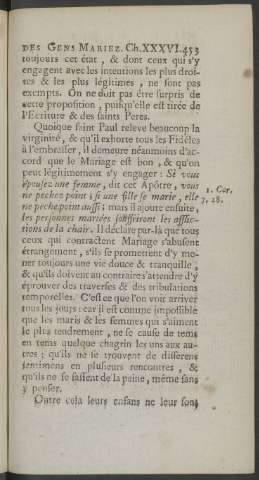 DES GENS MARIEZ. Ch. XXXVI. 453
toujours cet état, & dont ceux qui s'y
engagent avec les intentions les plus droi-
tes & les plus légitimes, ne sont pas
exempts. On ne doit pas être surpris de
cette proposition, puisqu'elle est tirée de
l'Ecriture & des saints Peres.
Quoique saint Paul releve beaucoup la
virginité, & qu'il exhorte tous les Fidéles
à l'embrasser, il demeure néanmoins d'ac-
cord que le Mariage est bon, & qu'on
peut légitimement s'y engager : Si vous
épousez une femme, dit cet Apôtre, vous
ne pechez point ; si une fille se marie, elle
ne peche point aussi : mais il ajoute ensuite,
les personnes mariées souffriront les afflic-
tions de la chair. Il déclare par-là que tous
ceux qui contractent Mariage s'abusent
étrangement, s'ils se promettent d'y me-
ner toujours une vie douce & tranquille ;
& qu'ils doivent au contraire s'attendre d'y
éprouver des traverses & des tribulations
temporelles. C'est ce que l'on voit arriver
tous les jours : car il est comme impossible
que les maris & les femmes qui s'aiment
le plus tendrement, ne se cause de tems
en tems quelque chagrin les uns aux au-
tres ; qu'ils ne se trouvent de differens
sentimens en plusieurs rencontres, &
qu'ils ne se fassent de la peine, même sans
y penser.
Outre cela leurs enfans ne leur sont
1. Cor.
7. 28.